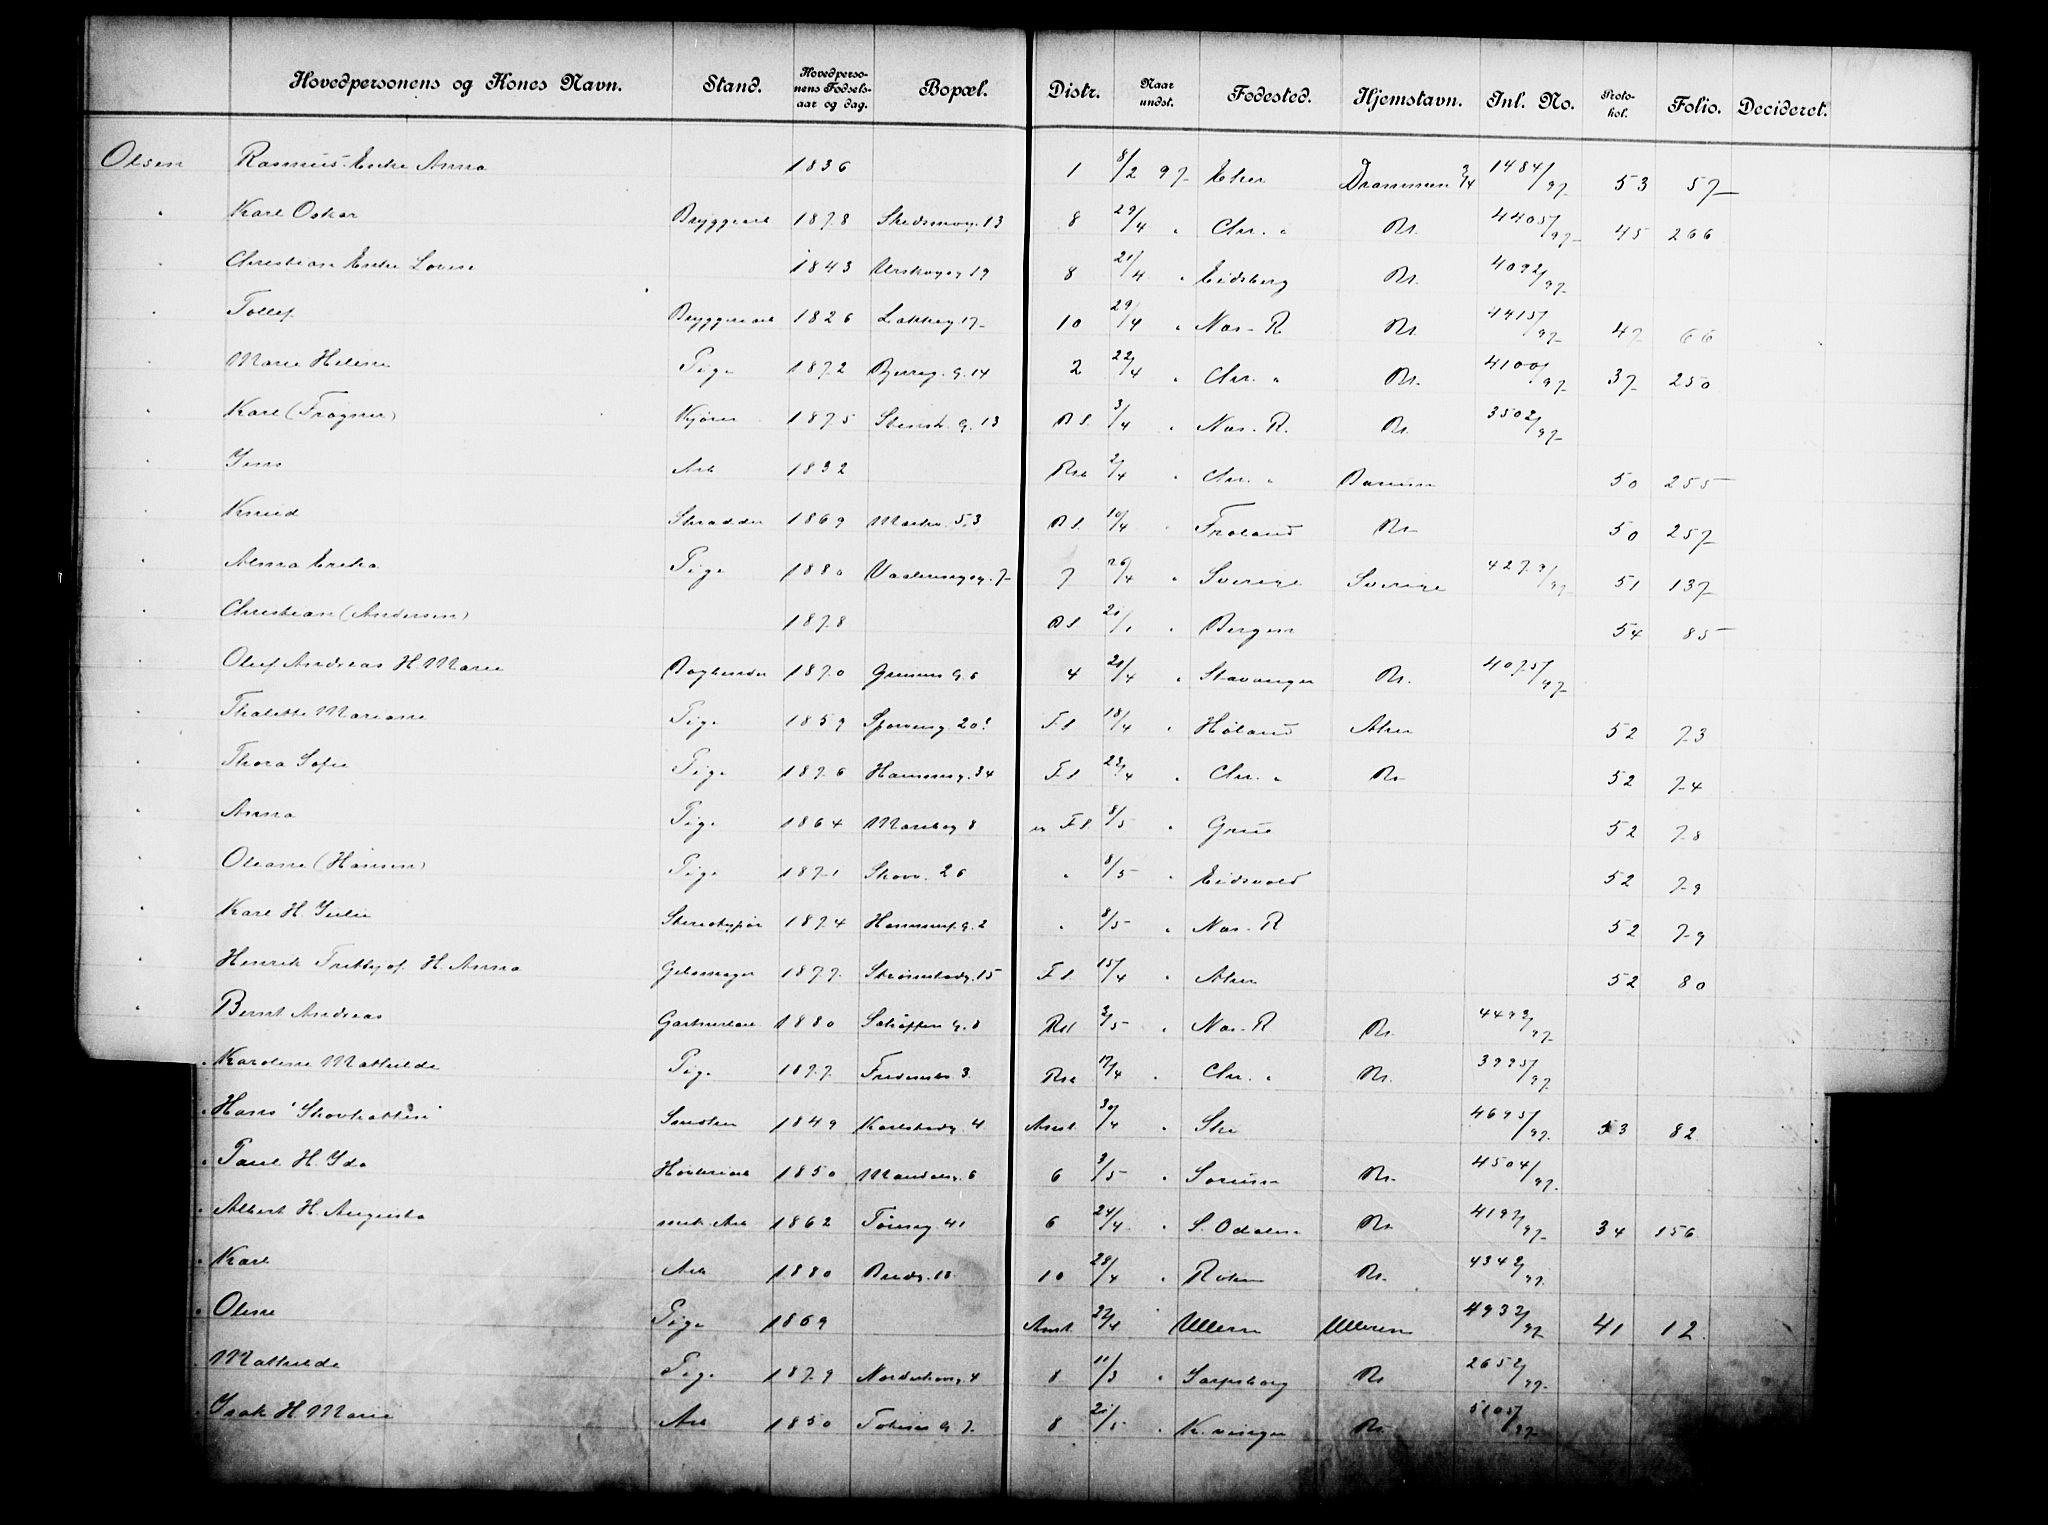 Hovedpersonens og Kones Navn. Stand. Hovedperso-nens Fødsels-aar og dag. Bopæl. Distr. Naar undst. Fødested. Hjemstavn. Inl. No. Proto-kol. Folio. Decideret.
Olsen Rasmus Enke Anna 1836 1 8/2 97 Eker Drammen 1484/97 53 57
" Karl Oskar Bryggearb 1878 Skedsmog. 13 8 29/4 " Chr. " Kr. 4405/97 45 266
" Christian Enke Lovise 1843 Urskogsg 19 8 21/4 " Eidsberg Kr. 4092/97
" Tollef Bryggeriarb 1826 Lakkeg 17 10 29/4 " Næs - R Kr. 4415/97 47 66
" Marie Helene Pige 1872 Bjerreg. G. 14 2 22/4 " Chr. " Kr. 4100/97 37 250
" Karl (Frogner) Kjører 1875 Stensb. G. 13 3/4 " Næs - R. Kr. 3502/97
" Jens Arb 1832 2/4 " Chr. " Bærum 50 255
" Knud Skrædder 1869 Markv. 53 10/4 " Froland Kr 50 257
" Alma Erika Pige 1880 Vaalerengg. 7 7 26/4 " Sverige Sverige 4279/97 51 137
" Christian (Andersen) 1878 21/1 " Bergen 54 85
" Oluf Andreas H. Marie Bogbinder 1870 Grüners G. 6 4 21/4 " Stavanger Kr. 4075/97
" Thalette Mariane Pige 1859 Sporveisg 20 F.l 18/4 " Høland Aker 52 73
" Thora Sofie Pige 1876 Hammersg. 34 F.l 23/4 " Chr. " Kr 52 74
" Anna Pige 1864 Maribog 8 F.l 8/5 " Grue 52 78
" Oleane (Hansen) Pige 1871 Skovv. 26 " 8/5 " Eidsvold 52 79
" Karl H. Julie Stereotypør 1874 Hammerf. G. 2 " 8/5 " Næs - R 52 79
" Henrik Fritjof H. Anna Gelbmager 1877 Strømstadg. 15 F.l 15/4 " Aker 52 80
" Bernt Andreas Gartnerlære 1880 Schøffers G. 8 3/5 " Næs - R Kr. 4492/97
" Karoline Mathilde Pige 1877 Fredensb. 3 17/4 " Chr. " Kr. 3995/97
" Hans "Skovkatten" Smelter 1849 Karlstadg. 4 Anst. 30/4 " Ski 4695/97 53 82
" Paul H. Ida Høvleriarb 1850 Mandalsg. 6 6 3/5 " Sørum Kr. 4504/97
" Albert H. Augusta mek. Arb 1862 Tøieng 41 6 24/4 " S. Odalen Kr 4197/97 34 156
" Karl Arb 1880 Bredg. 18 10 28/4 " Røken Kr. 4342/97
" Oline Pige 1869 Anst. 27/4 " Ullern Ullern 4932/97 41 12
" Mathilde Pige 1879 Nordahlsv. 4 8 11/3 " Sarpsborg Kr 2652/97
" Isak H. Marie Arb 1850 Tøiens G. 7 8 21/5 " K.vinger Kr. 5105/97